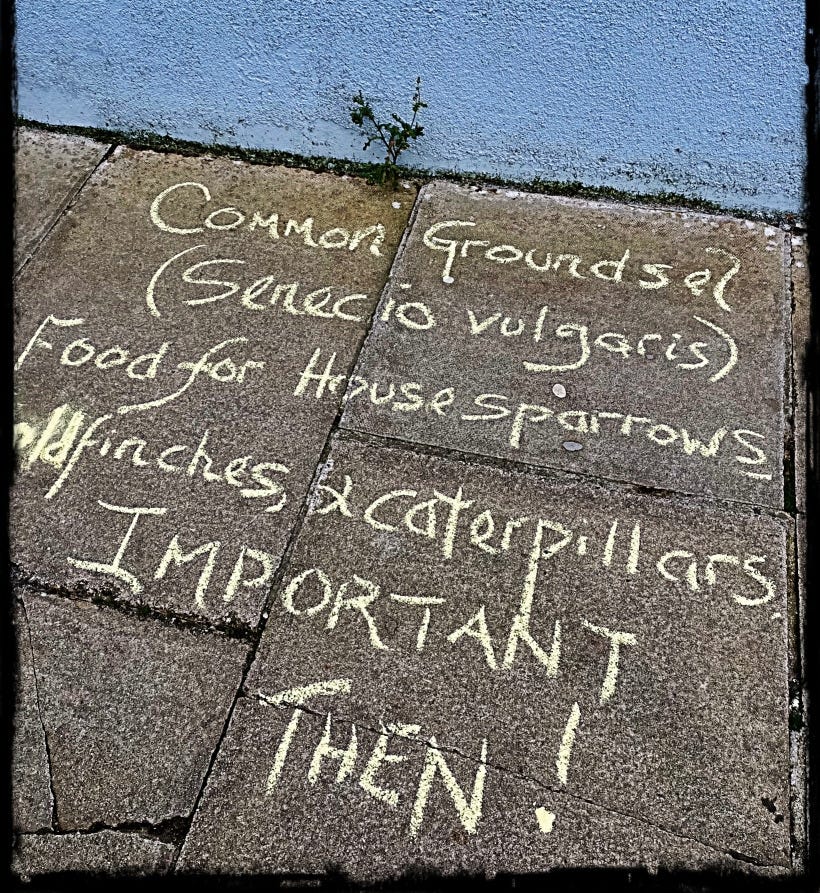 Common Groundsel
(Senecio vulgaris)
Food for House sparrows
oldfinches, & caterpillars
IMPORTANT
THEN!